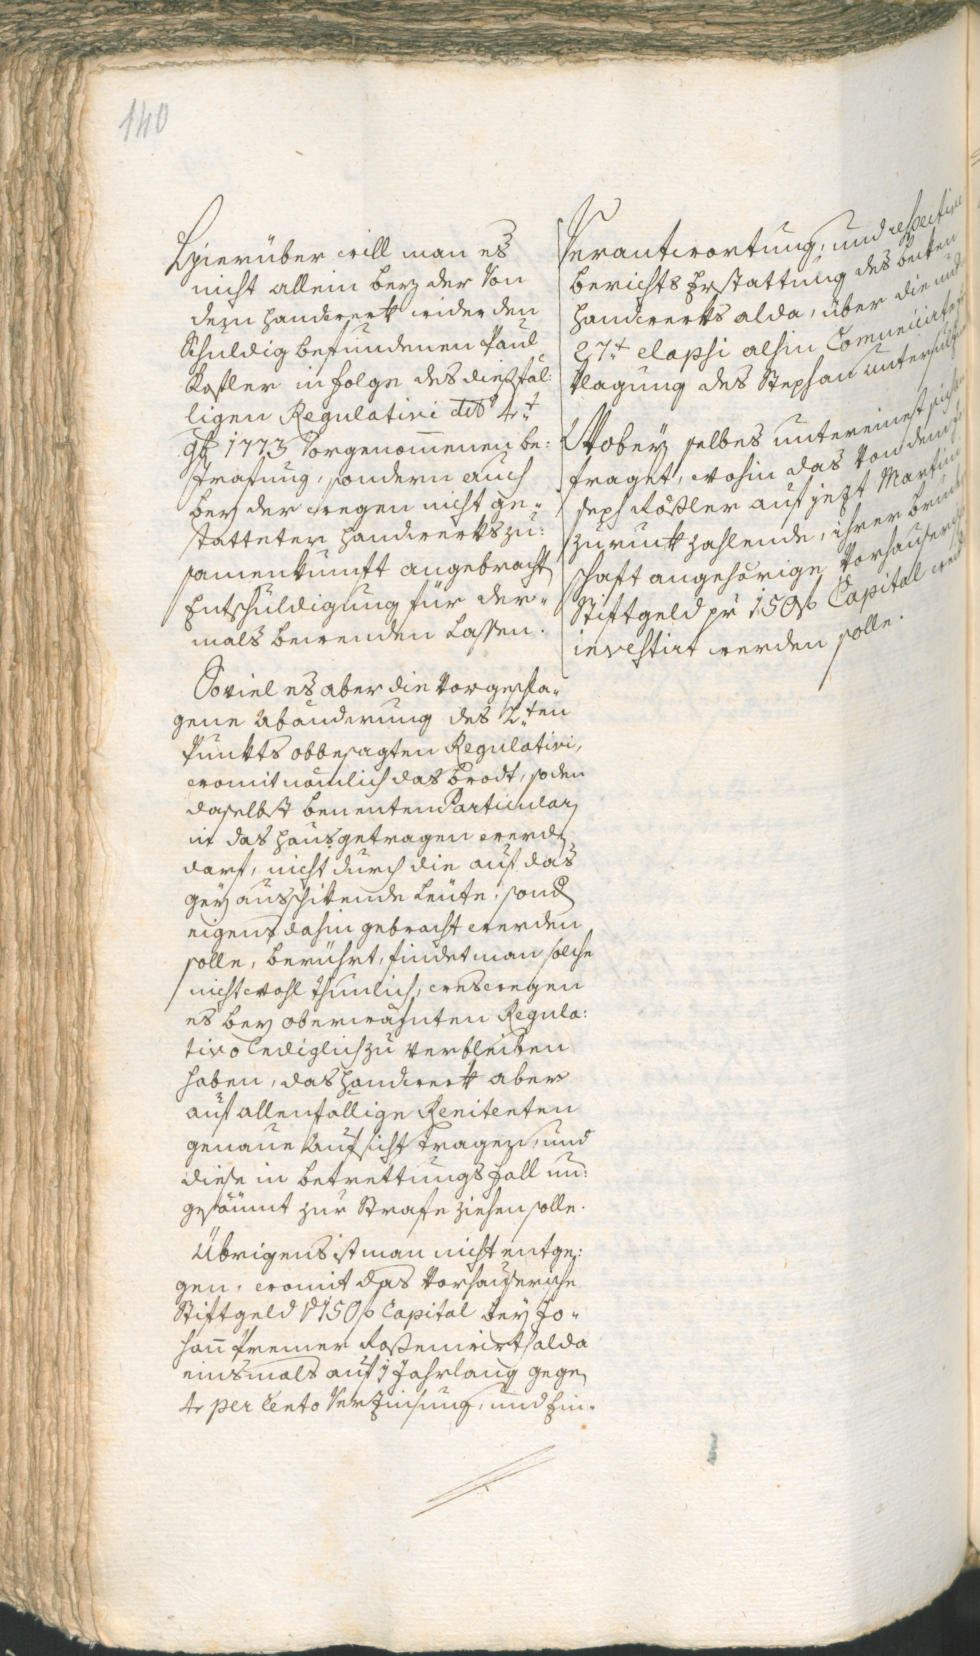 140
Hierüber will man es
nicht allein bey der von
dem Handwerk wider den
Schuldig befundenen Paul
Kostler in folge des diesfäl:
ligen Regulativi ddo 4t
9b 1773 vorgenommenen be:
strafung, sondern auch
bey der wegen nicht ge-
statteter Handwerkszu:
samenkunft angebracht
Entschuldigung für der-
mals bewenden lassen.
Soviel es aber die vorgeschla-
gene Abänderung des 2ten
Punkts obbesagten Regulativi,
womit nämlich das Brodt, so den
daselbst benenten Particular
in das Haus getragen werd
darf, nicht durch die auf das
geÿ ausschikende Leüte, sond
eigens dahin gebracht werden
solle, berührt, findet man solche
nicht wohl thunlich, weswegen
es bey oberwähnten Regula:
tivo lediglich zu verbleiben
haben, das Handwerk aber
auf allenfällige Renitenten
genaue Aufsicht tragen, und
diese in betrettungs fall un:
gesäumt zur Strafe ziehen solle.
Übrigens ist man nicht entge:
gen, womit das Vorhauserische
Stiftgeld 150f Capital beÿ Jo-
hann Premer Rossenwirth alda
einsmals auf 1 Jahr lang gege
4 per Cento Verzinsung, und hin-
Verantwortung, und respective
berichts Erstattung des becken
Handwerks alda, über die unt
27t elapsi alhin Communicirte
klagung des Stephan
Wobey selbes untereinst
fraget, wohin das von dem
seph Rößler auf jezt Martini
zuruck zahlende, ihrer bruder
schaft angehörige Vorhauserische
Stiftgeld pr 150f Capital
investirt werden solle.